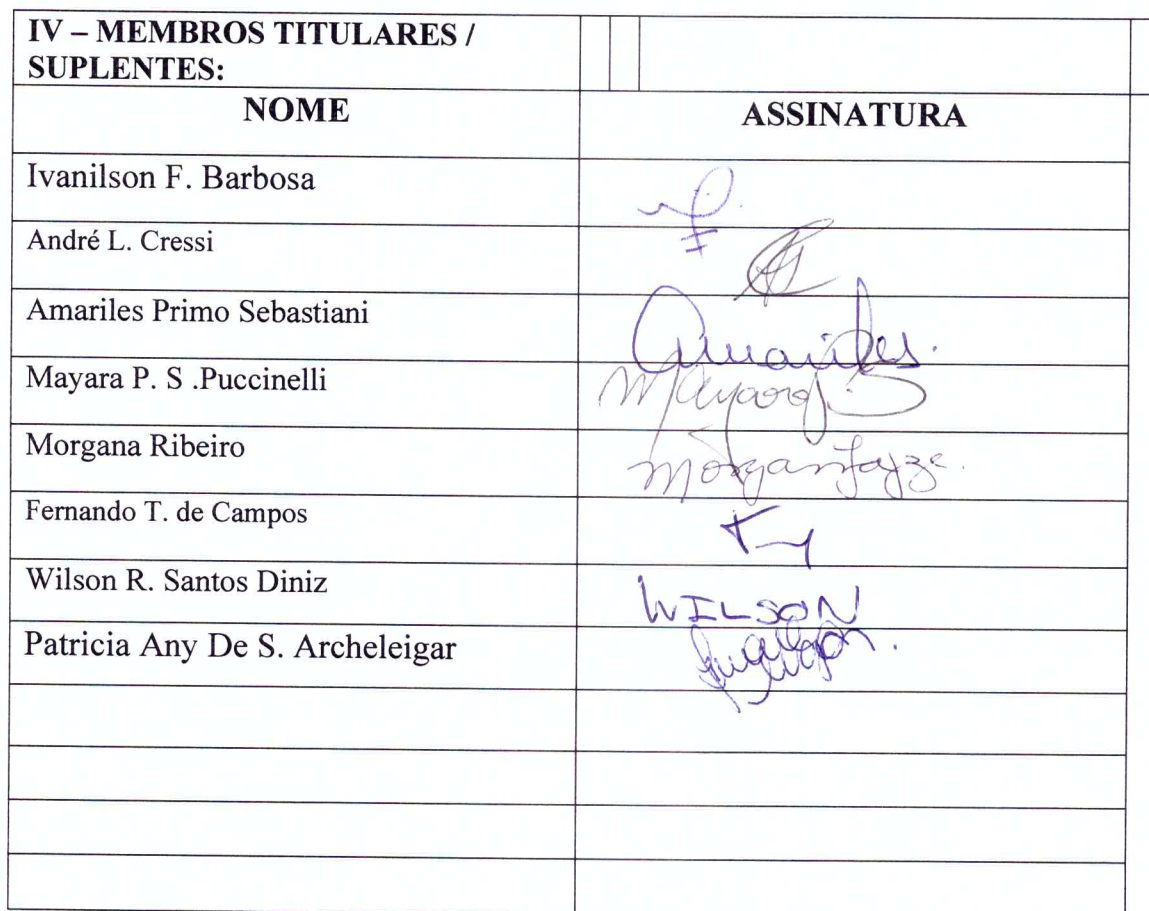 IV – MEMBROS TITULARES /
SUPLENTES:
NOME ASSINATURA
Ivanilson F. Barbosa
André L. Cressi
Amariles Primo Sebastiani Amariles.
Mayara P. S .Puccinelli Mayara
Morgana Ribeiro
Fernando T. de Campos
Wilson R. Santos Diniz WILSON
Patricia Any De S. Archeleigar